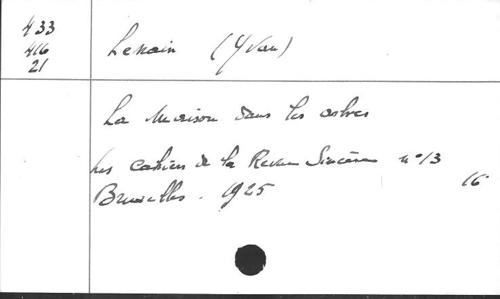 433
416
21
Lenain (Yvan)
La Maison dans les arbres
Les cahiers de la Revue Sincère n° 13
Bruxelles. 1925
16